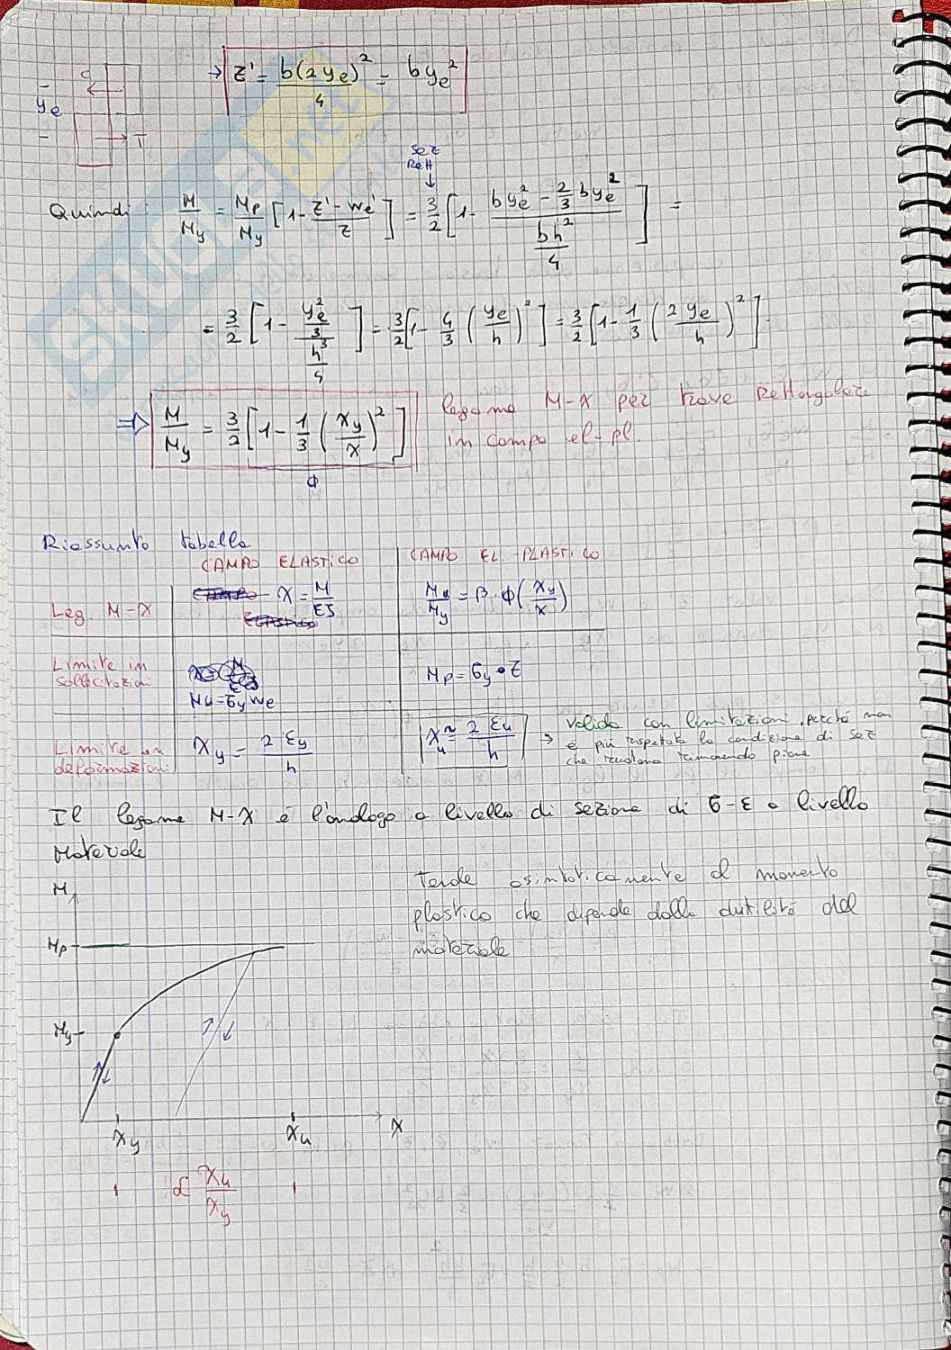 C
y_e
T
→ Z' = b(2y_e)²/4 = b y_e²
SEZ
RETT
↓
Quindi: M/M_y = M_p/M_y [1 - (Z' - W_e')/Z] = 3/2 [1 - (b y_e² - 2/3 b y_e²)/(b h²/4)] =
= 3/2 [1 - (y_e²/3)/(h³/4)] = 3/2 [1 - 4/3 (y_e/h)²] = 3/2 [1 - 1/3 (2y_e/h)²]
⇒ M/M_y = 3/2 [1 - 1/3 (χ_y/χ)²]
ϕ
legame M-χ per trave Rettangolare
in campo el-pl.
Riassunto tabella
CAMPO ELASTICO
CAMPO EL-PLASTICO
Leg. M-χ
χ = M/EJ
M_u/M_y = β·ϕ(χ_y/χ)
Limite in
M_y = σ_y W_e
M_p = σ_y • Z
Limite in
deformazioni
χ_y = 2ε_y/h
χ_u ≈ 2ε_u/h
→ valido con limitazioni, perché non
è più rispettata la condizione di sez
che ruotano rimanendo piane
Il legame M-χ è l'analogo a livello di sezione di σ-ε a livello
Materiale
M
Tende asintoticamente al momento
plastico che dipende dalla duttilità del
materiale
M_p
M_y
χ_y
χ_u
χ
α χ_u/χ_y
SKUOLA.net